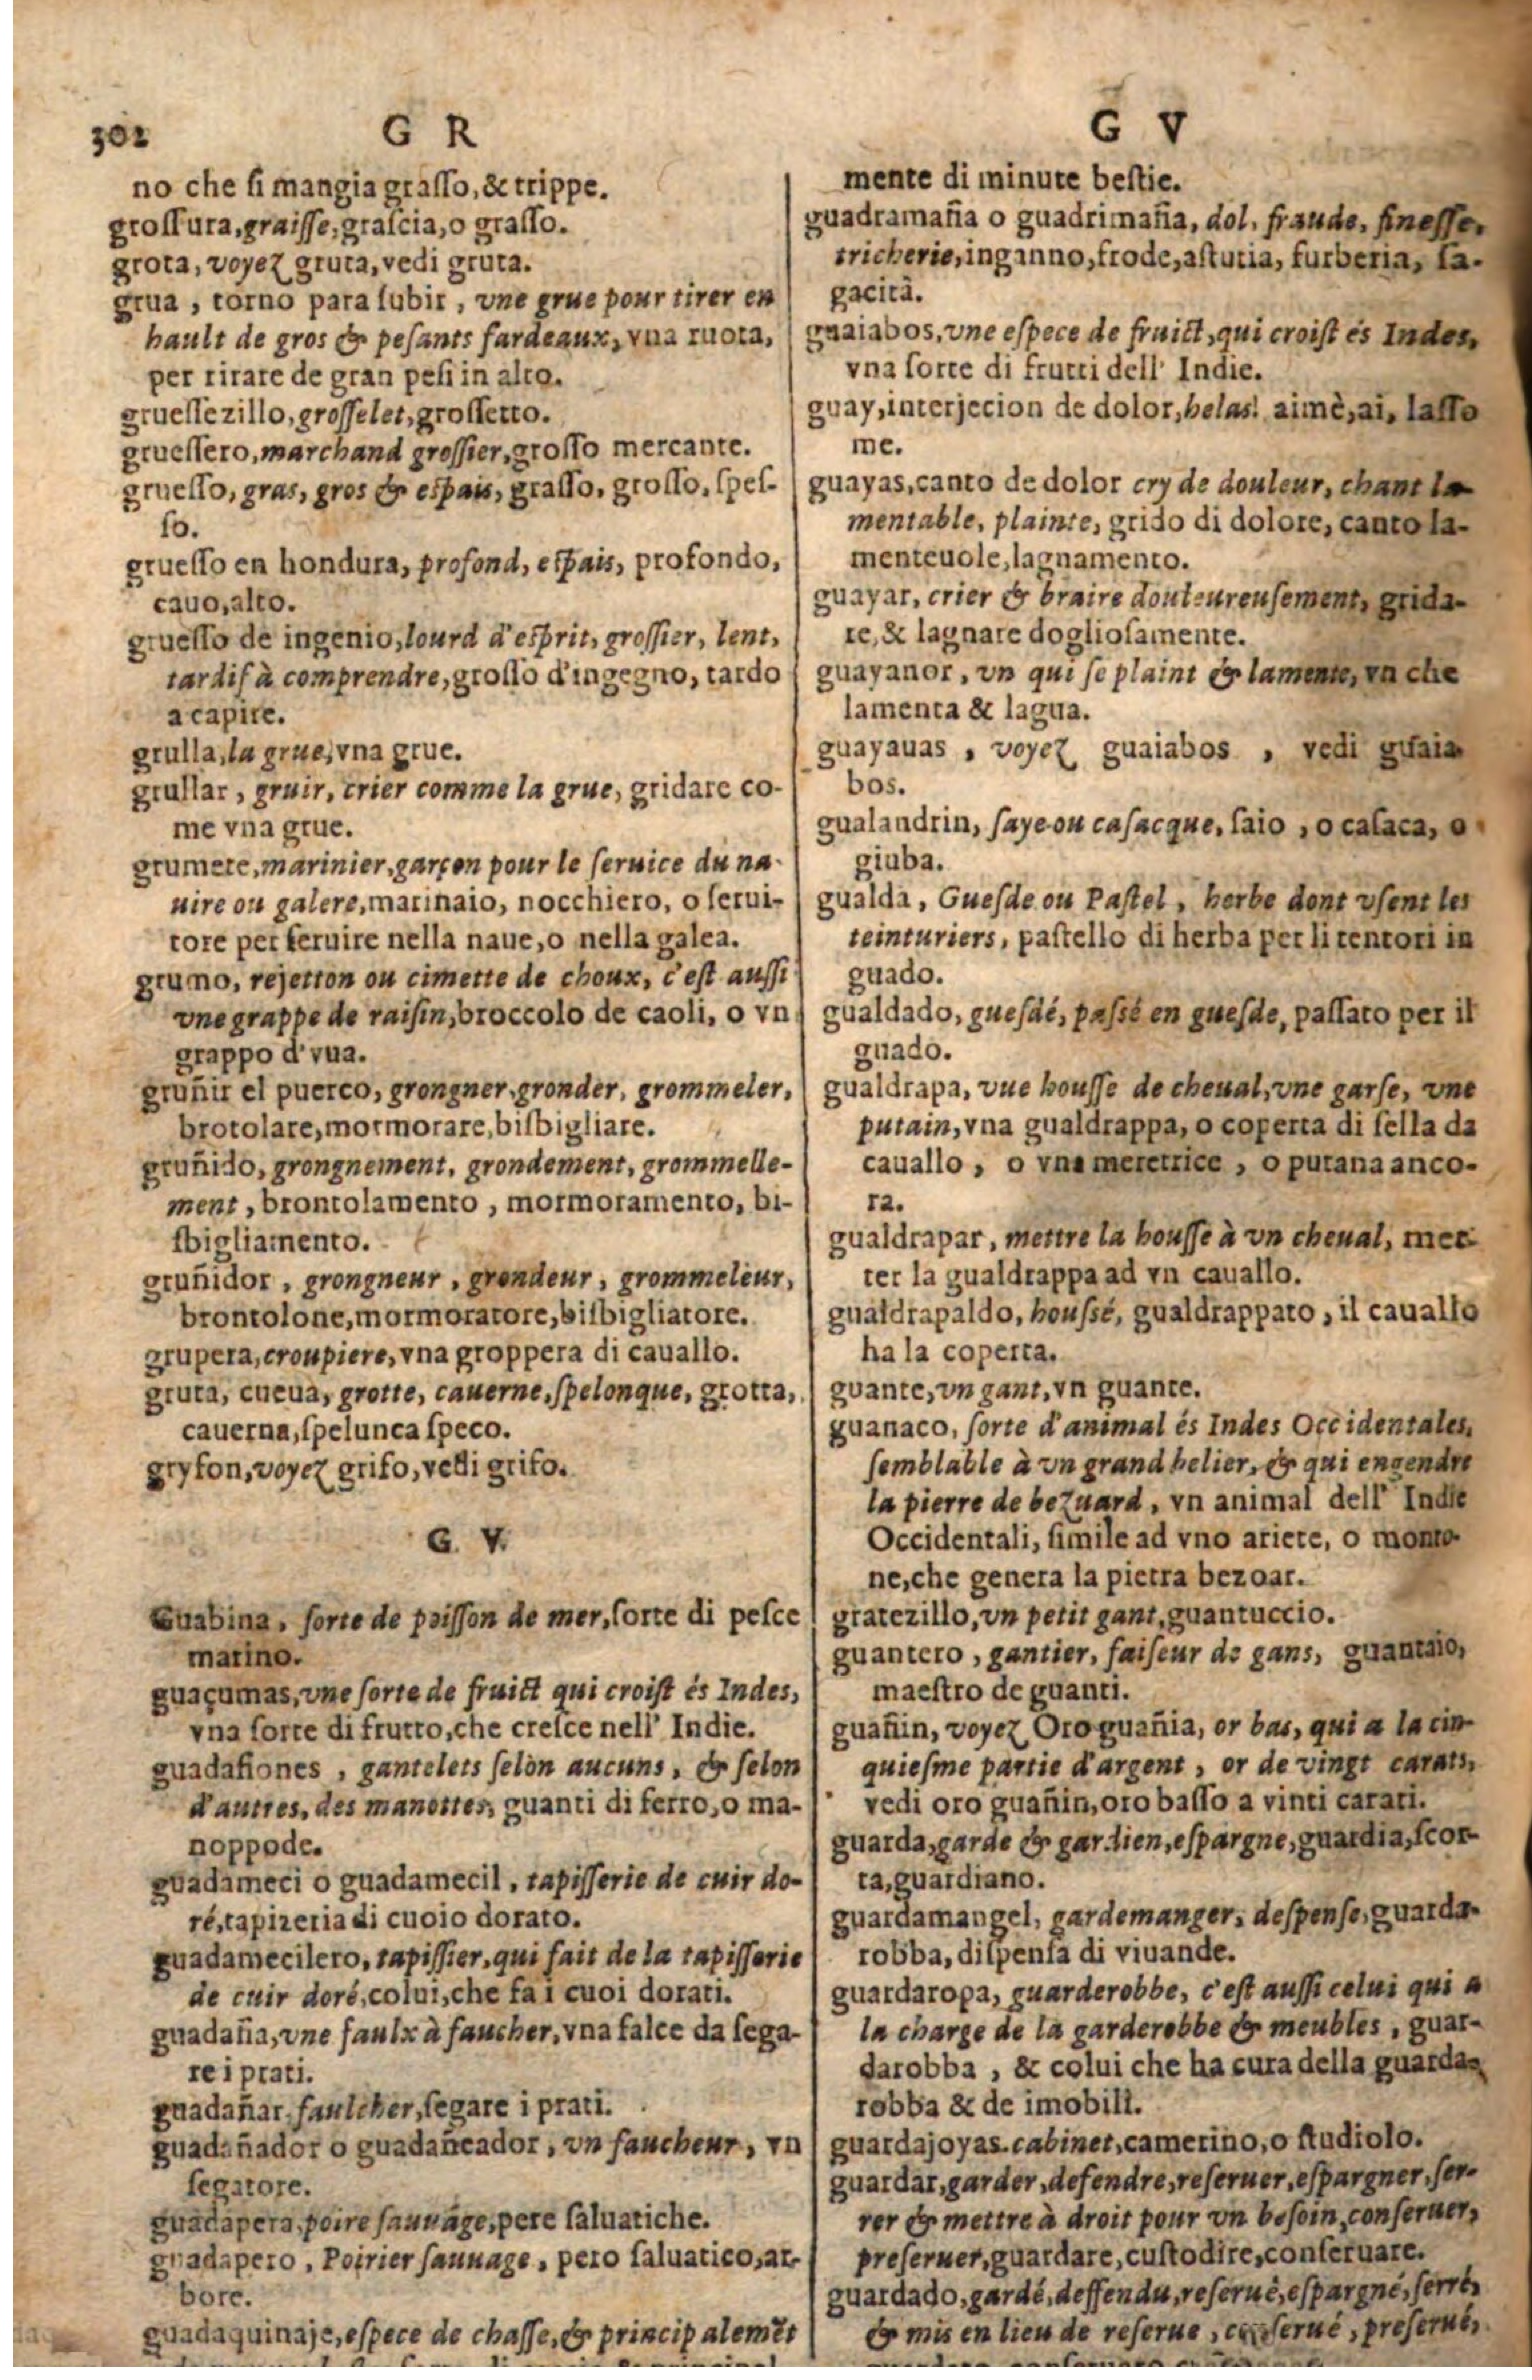 302
G R
no che ſi mangia graſſo,& trippe.
groſſura,graiſſe,graſcia,o graſſo.
grota, voyez gruta,vedi gruta.
grua , torno para ſubir , vne grue pour tirer en
hault de gros & peſants fardeaux, vna ruota,
per tirare de gran peſi in alto.
grueſſezillo,groſſelet,groſſetto.
grueſſero,marchand groſſier,groſſo mercante.
grueſſo, gras, gros & eſpais, graſſo, groſſo, ſpeſ-
ſo.
grueſſo en hondura, profond, eſpais, profondo,
cauo,alto.
grueſſo de ingenio,lourd d'eſprit, groſſier, lent,
tardif à comprendre,groſſo d'ingegno, tardo
a capire.
grulla,la grue,vna grue.
grullar , gruir, crier comme la grue, gridare co-
me vna grue.
grumete,marinier,garçon pour le ſeruice du na-
uire ou galere,marinaio, nocchiero, o ſerui-
tore per ſeruire nella naue,o nella galea.
grumo, rejetton ou cimette de choux, c'eſt auſſi
vne grappe de raiſin,broccolo de caoli, o vn
grappo d'vua.
gruñir el puerco, grongner,gronder, grommeler,
brotolare,mormorare,biſbigliare.
gruñido, grongnement, grondement, grommelle-
ment , brontolamento , mormoramento, bi-
ſbigliamento.
gruñidor , grongneur , grondeur , grommeleur,
brontolone,mormoratore,biſbigliatore.
grupera,croupiere,vna groppera di cauallo.
gruta, cueua, grotte, cauerne,ſpelonque, grotta,
cauerna,ſpelunca ſpeco.
gryfon,voyez grifo,vedi grifo.
G V.
Guabina , ſorte de poiſſon de mer,ſorte di peſce
marino.
guaçumas,vne ſorte de fruict qui croiſt és Indes,
vna ſorte di frutto,che creſce nell' Indie.
guadafiones , gantelets ſelon aucuns , & ſelon
d'autres, des manottes, guanti di ferro,o ma-
noppode.
guadameci o guadamecil , tapiſſerie de cuir do-
ré,tapizeria di cuoio dorato.
guadamecilero, tapiſſier,qui fait de la tapiſſerie
de cuir doré,colui,che fa i cuoi dorati.
guadaña,vne faulx à faucher,vna falce da ſega-
re i prati.
guadañar faulcher,ſegare i prati.
guadañador o guadañeador , vn faucheur , vn
ſegatore.
guadapera,poire ſauuage,pere ſaluatiche.
guadapero , Poirier ſauuage , pero ſaluatico,ar-
bore.
guadaquinaje,eſpece de chaſſe,& principalemẽt
G V
mente di minute beſtie.
guadramaña o guadrimaña, dol, fraude, fineſſe,
tricherie,inganno,frode,aſtutia, furberia, ſa-
gacità.
guaiabos,vne eſpece de fruict,qui croiſt és Indes,
vna ſorte di frutti dell' Indie.
guay,interjecion de dolor,helas! aimè,ai, laſſo
me.
guayas,canto de dolor cry de douleur, chant la-
mentable, plainte, grido di dolore, canto la-
menteuole,lagnamento.
guayar, crier & braire douleureuſement, grida-
re,& lagnare doglioſamente.
guayanor , vn qui ſe plaint & lamente, vn che
lamenta & lagua.
guayauas , voyez guaiabos , vedi guaia-
bos.
gualandrin, ſaye ou caſacque, ſaio , o caſaca, o
giuba.
gualda , Gueſde ou Paſtel , herbe dont vſent les
teinturiers, paſtello di herba per li tentori in
guado.
gualdado, gueſdé, paſſé en gueſde, paſſato per il
guado.
gualdrapa, vue houſſe de cheual,vne garſe, vne
putain,vna gualdrappa, o coperta di ſella da
cauallo , o vna meretrice , o putana anco-
ra.
gualdrapar , mettre la houſſe à vn cheual, met-
ter la gualdrappa ad vn cauallo.
gualdrapaldo, houſſé, gualdrappato , il cauallo
ha la coperta.
guante,vn gant,vn guante.
guanaco, ſorte d'animal és Indes Occidentales,
ſemblable à vn grand belier, & qui engendre
la pierre de bezuard , vn animal dell' Indie
Occidentali, ſimile ad vno ariete, o monto-
ne,che genera la pietra bezoar.
gratezillo,vn petit gant,guantuccio.
guantero , gantier, faiſeur de gans, guantaio,
maeſtro de guanti.
guañin, voyez Oro guañia, or bas, qui a la cin-
quieſme partie d'argent , or de vingt carats,
vedi oro guañin,oro baſſo a vinti carati.
guarda,garde & gardien,eſpargne,guardia,ſcor-
ta,guardiano.
guardamangel, gardemanger, deſpenſe,guarda-
robba, diſpenſa di viuande.
guardaropa, guarderobbe, c'eſt auſſi celui qui a
la charge de la garderobbe & meubles , guar-
darobba , & colui che ha cura della guarda-
robba & de imobili.
guardajoyas.cabinet,camerino,o ſtudiolo.
guardar,garder,defendre,reſeruer,eſpargner,ſer-
rer & mettre à droit pour vn beſoin,conſeruer,
preſeruer,guardare,cuſtodire,conſeruare.
guardado,gardé,deffendu,reſerué,eſpargné,ſerré,
& mis en lieu de reſerue , conſerué , preſerué,